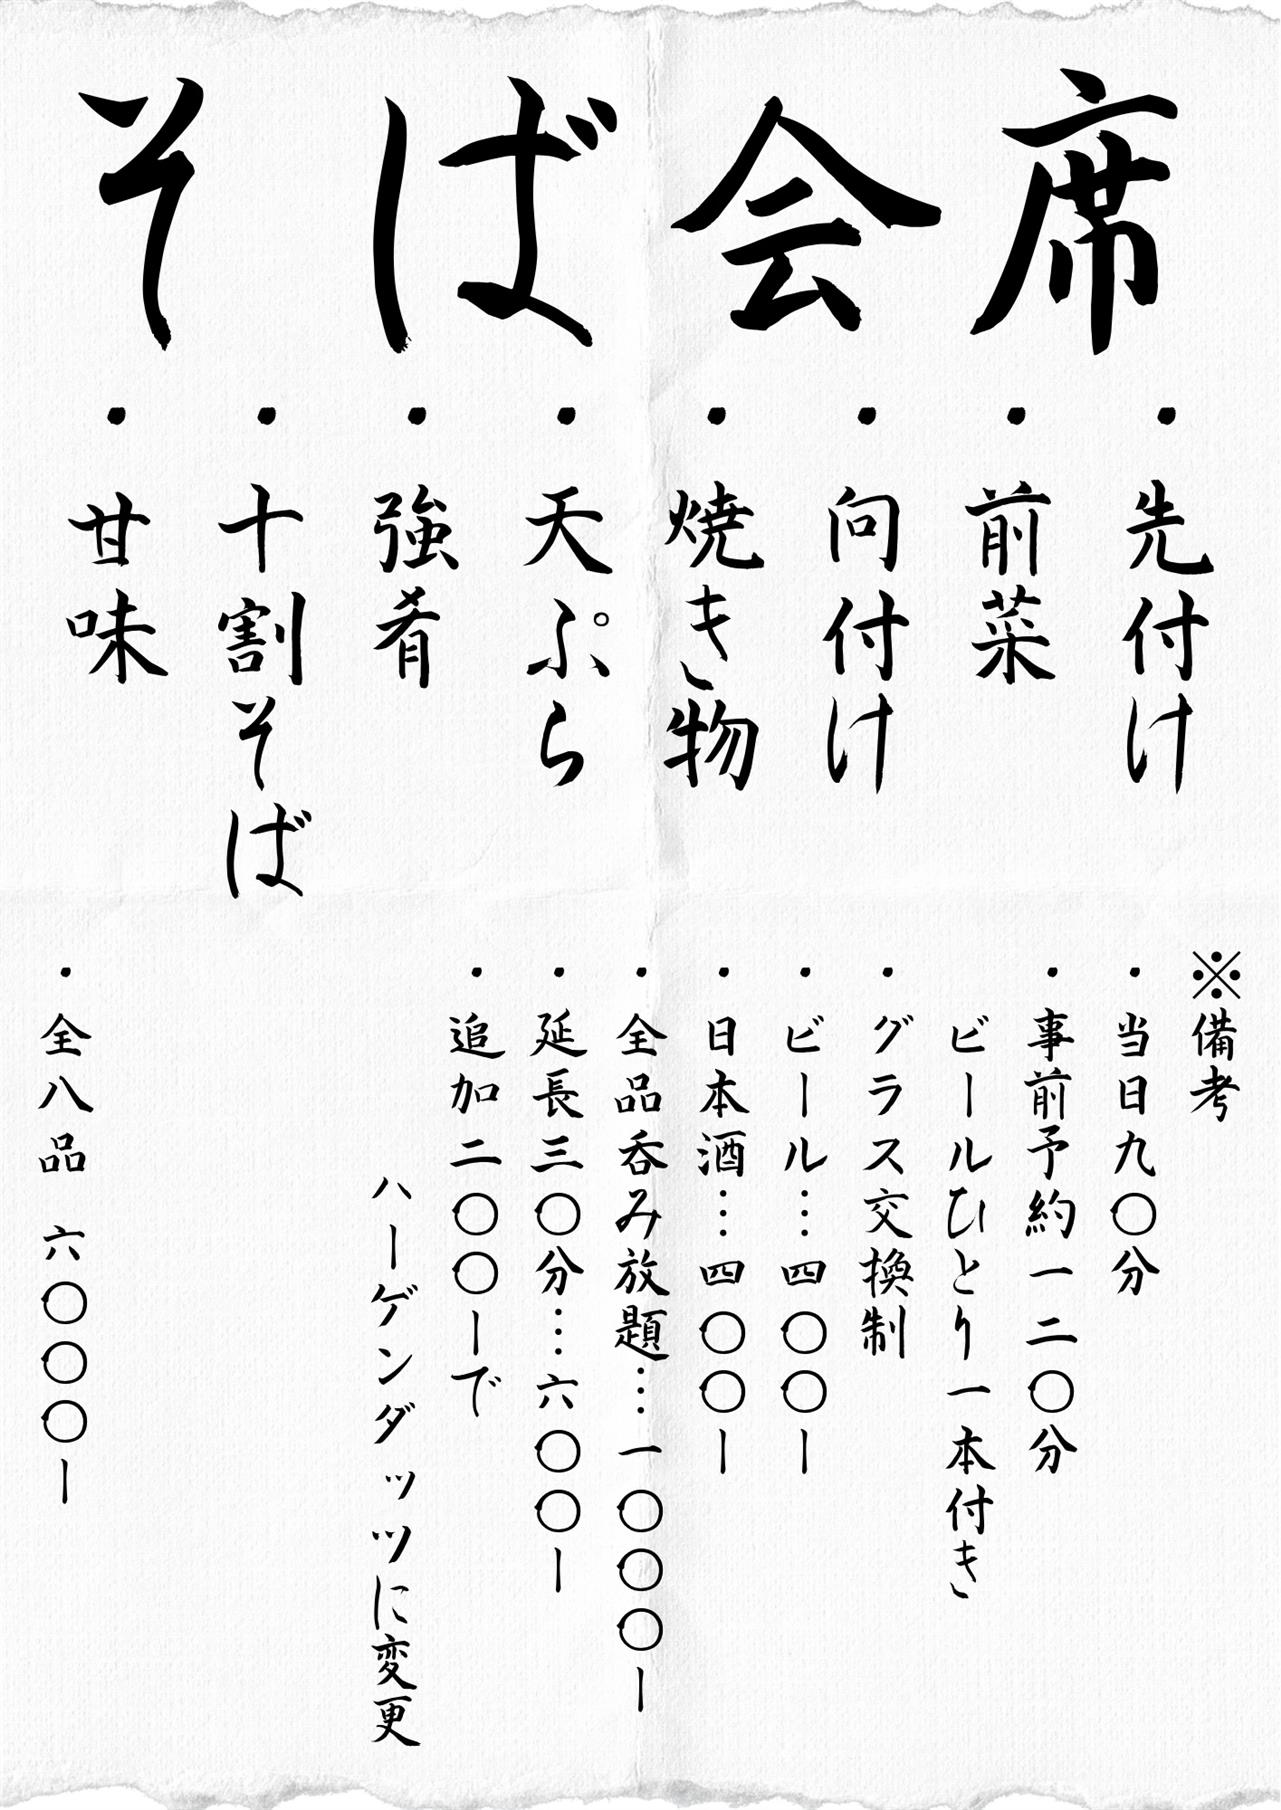 そば会席
・先付け
・前菜
・向付け
・焼き物
・天ぷら
・強肴
・十割そば
・甘味
※備考
・当日九〇分
・事前予約一二〇分
ビールひとり一本付き
・グラス交換制
・ビール…四〇〇ー
・日本酒…四〇〇ー
・全品呑み放題…一〇〇〇ー
・延長三〇分…六〇〇ー
・追加二〇〇ーで
ハーゲンダッツに変更
・全八品 六〇〇〇ー